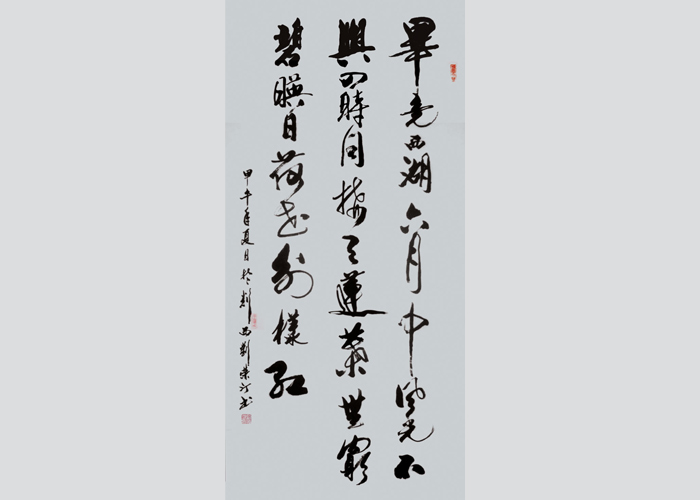 畢竟西湖六月中風光不
與四時同接天蓮葉無窮
碧暎日荷花別樣紅
甲午年夏月於西劉榮書